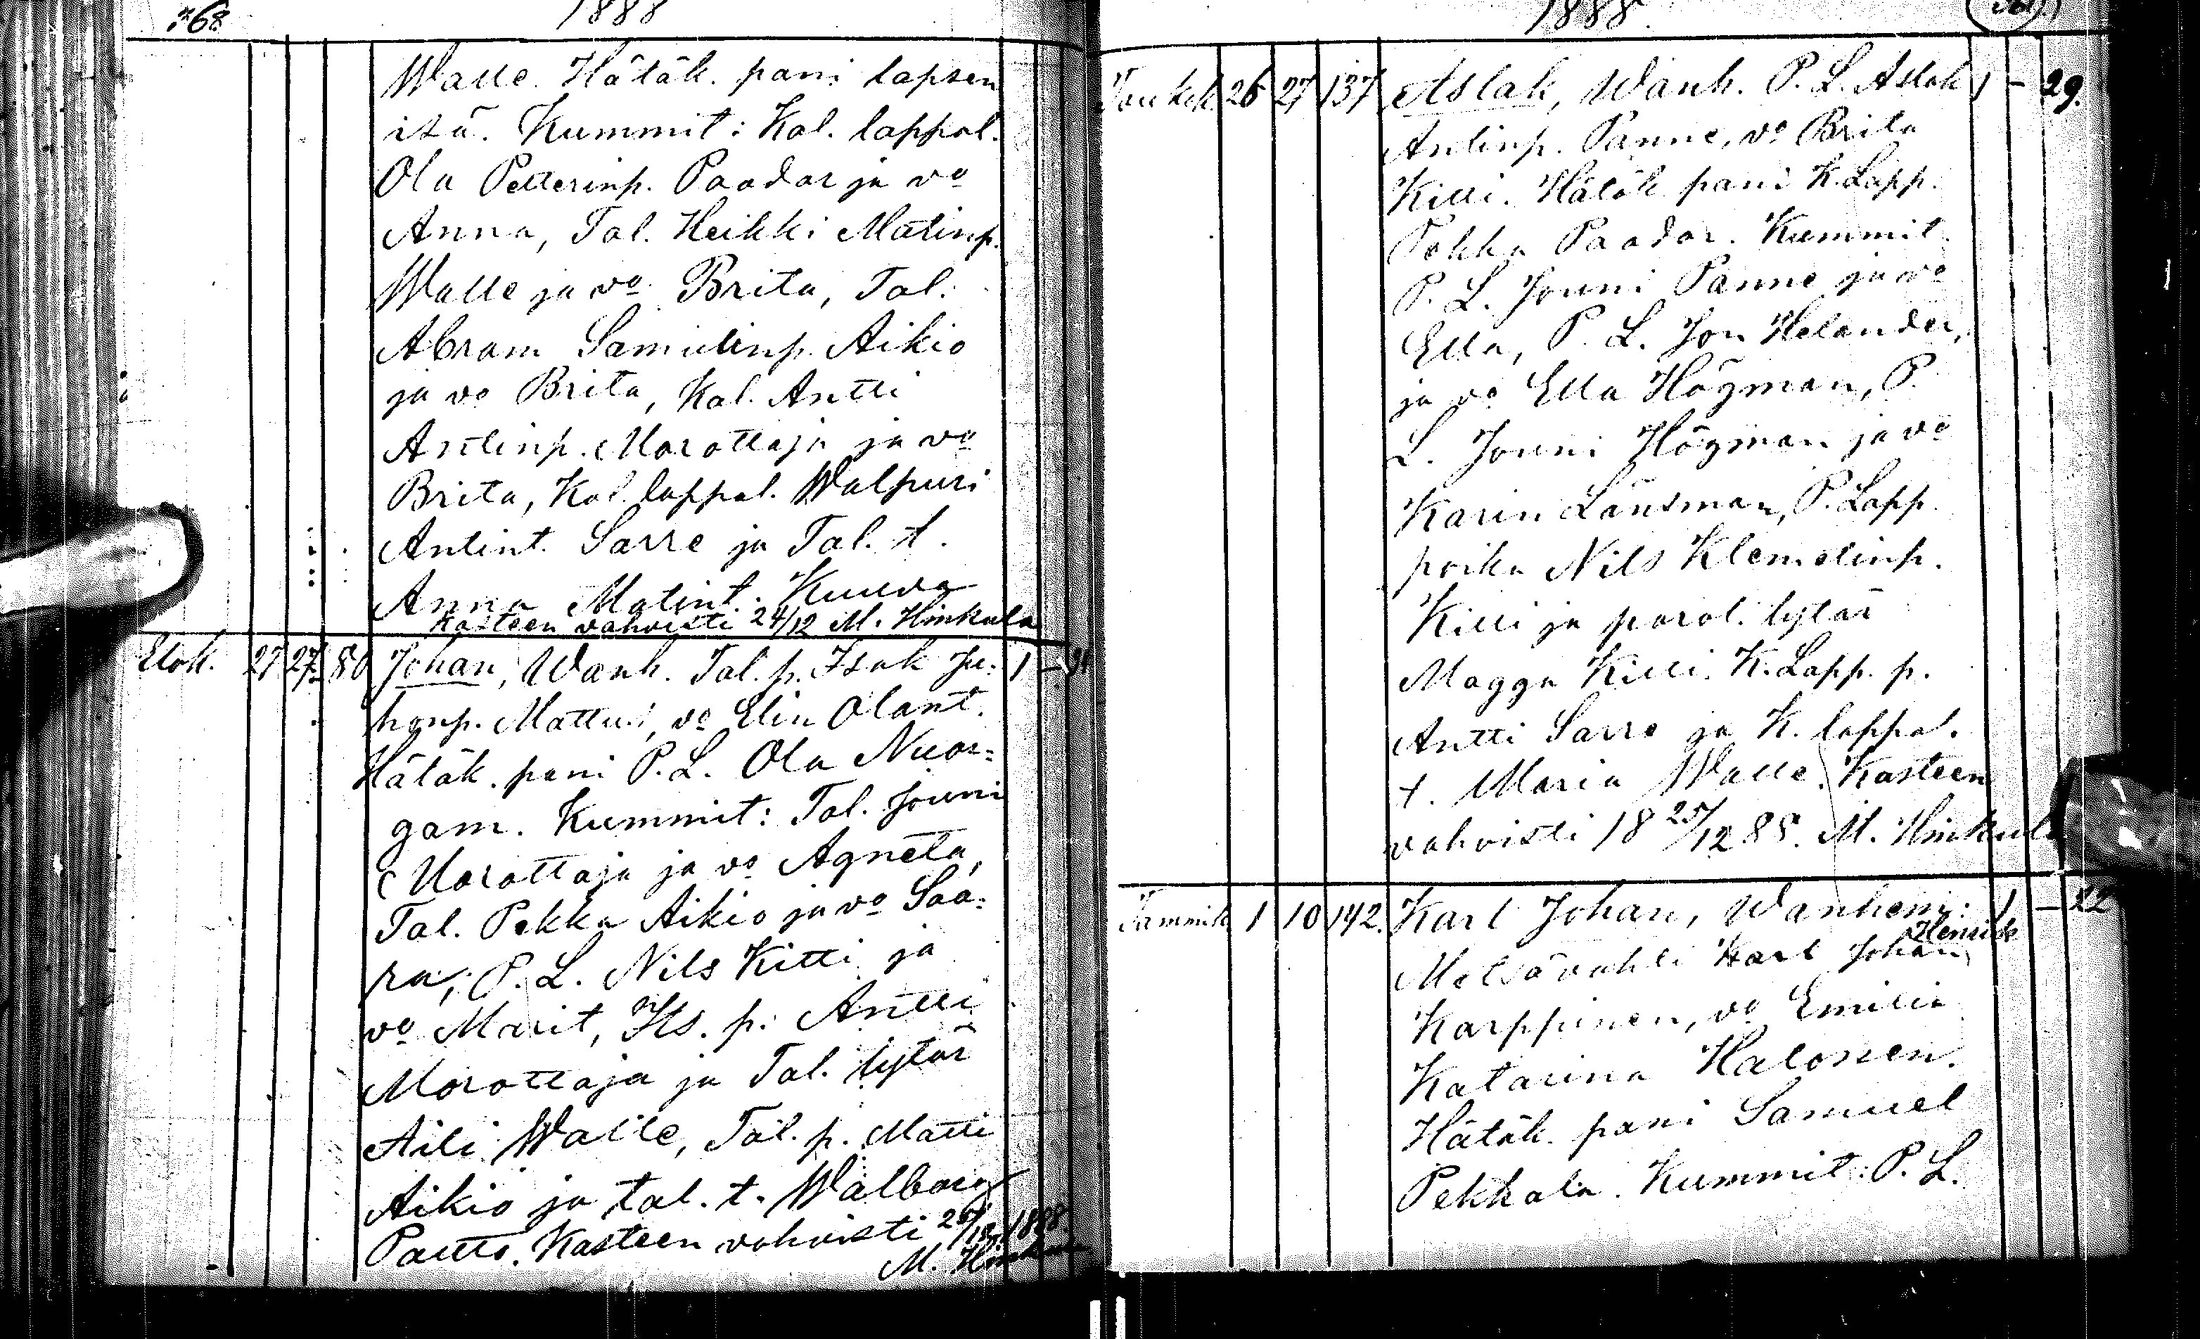 768
1888
Walle. Hätäk. pani lapsen
isä. Kummit: Kal. lappal.
Ola Petterinp. Paadar ja vo
Anna, Tal. Heikki Matinp.
Walle ja vo Brita, Tal.
Abram Samulinp. Aikio
ja vo Brita, Kal. Antti
Antinp. Morottaja ja vo
Brita, Kal. lappal. Walpuri
Antint. Sarre ja Tal. t.
Anna Matint. Kuuva
Kasteen vahvisti 24/12 M. Hinkula
Elok. 27 27 80 Johan, Wanh. Tal. p. Isak Ju- 1 -
hanp. Mattus, vo Elin Olant.
Hätäk. pani P. L. Ola Nuor=
gam. Kummit: Tal. Jouni
Morottaja ja vo Agneta,
Tal. Pekka Aikio ja vo Saa=
ra, P. L. Nils Kitti ja
vo Marit, Its. p. Antti
Morottaja ja Tal. tytär
Aili Walle, Tal. p. Matti
Aikio ja tal. t. Walborg
Pautto. Kasteen vahvisti 26/12 1888
M. Hinkula
1888
Toukok 26 27 137 Aslak, Wanh. P. L. Aslak 1 - 29.
Antinp. Panne, vo Brita
Kitti. Hätäk. pani K. Lapp.
Pekka Paadar. Kummit.
P. L. Jouni Panne ja vo
Ella, P. L. Jon Helander,
ja vo Ella Högman, P.
L. Jouni Högman ja vo
Karin Länsman, P. Lapp.
poika Nils Klemetinp.
Kitti ja porol. tytär
Magga Kitti. K. Lapp. p.
Antti Sarre ja K. lappal.
t. Maria Walle. Kasteen
vahvisti 18 25/12 88. M. Hinkula
Tammik 1 10 142. Karl Johan, Wanhem: 1 - 22
Henrik
Metsävahti Karl Johan
Karppinen, vo Emilia
Katarina Halonen.
Hätäk. pani Samuel
Pekkala. Kummit: P. L.